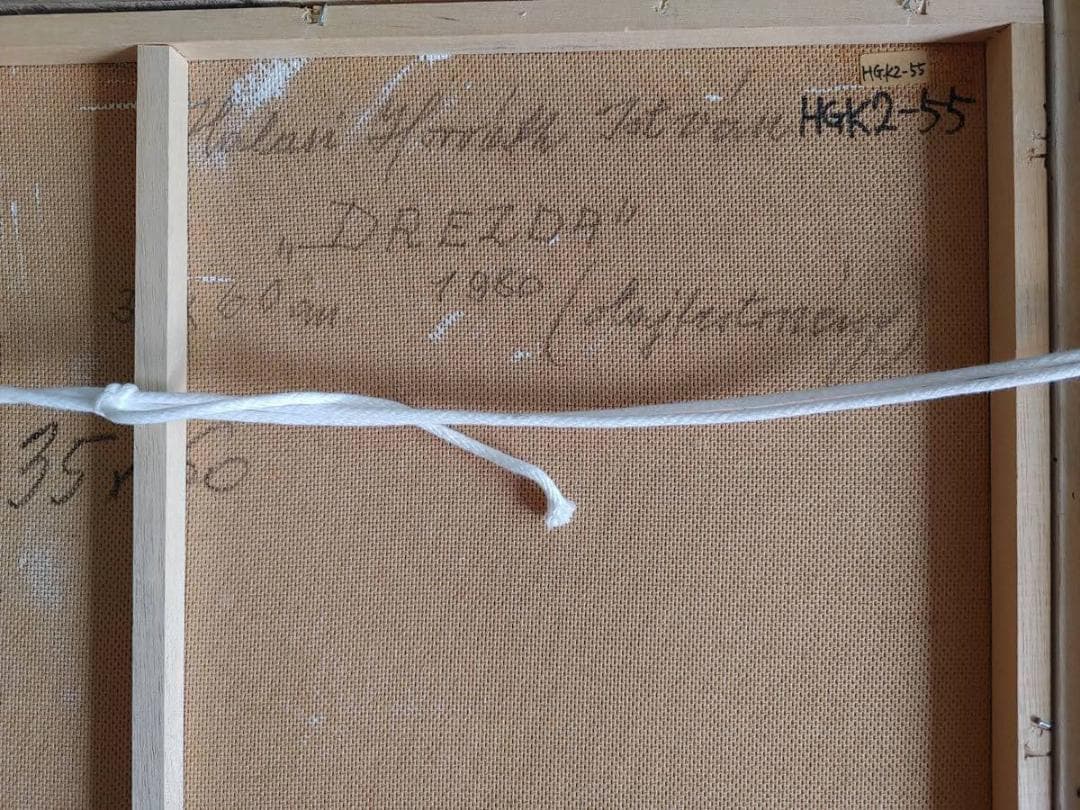 HGK2-55
Halasi Horváth István HGK2-55
„DREZDA”
x 60 cm 1980 (olajfestmény)
35 x 60